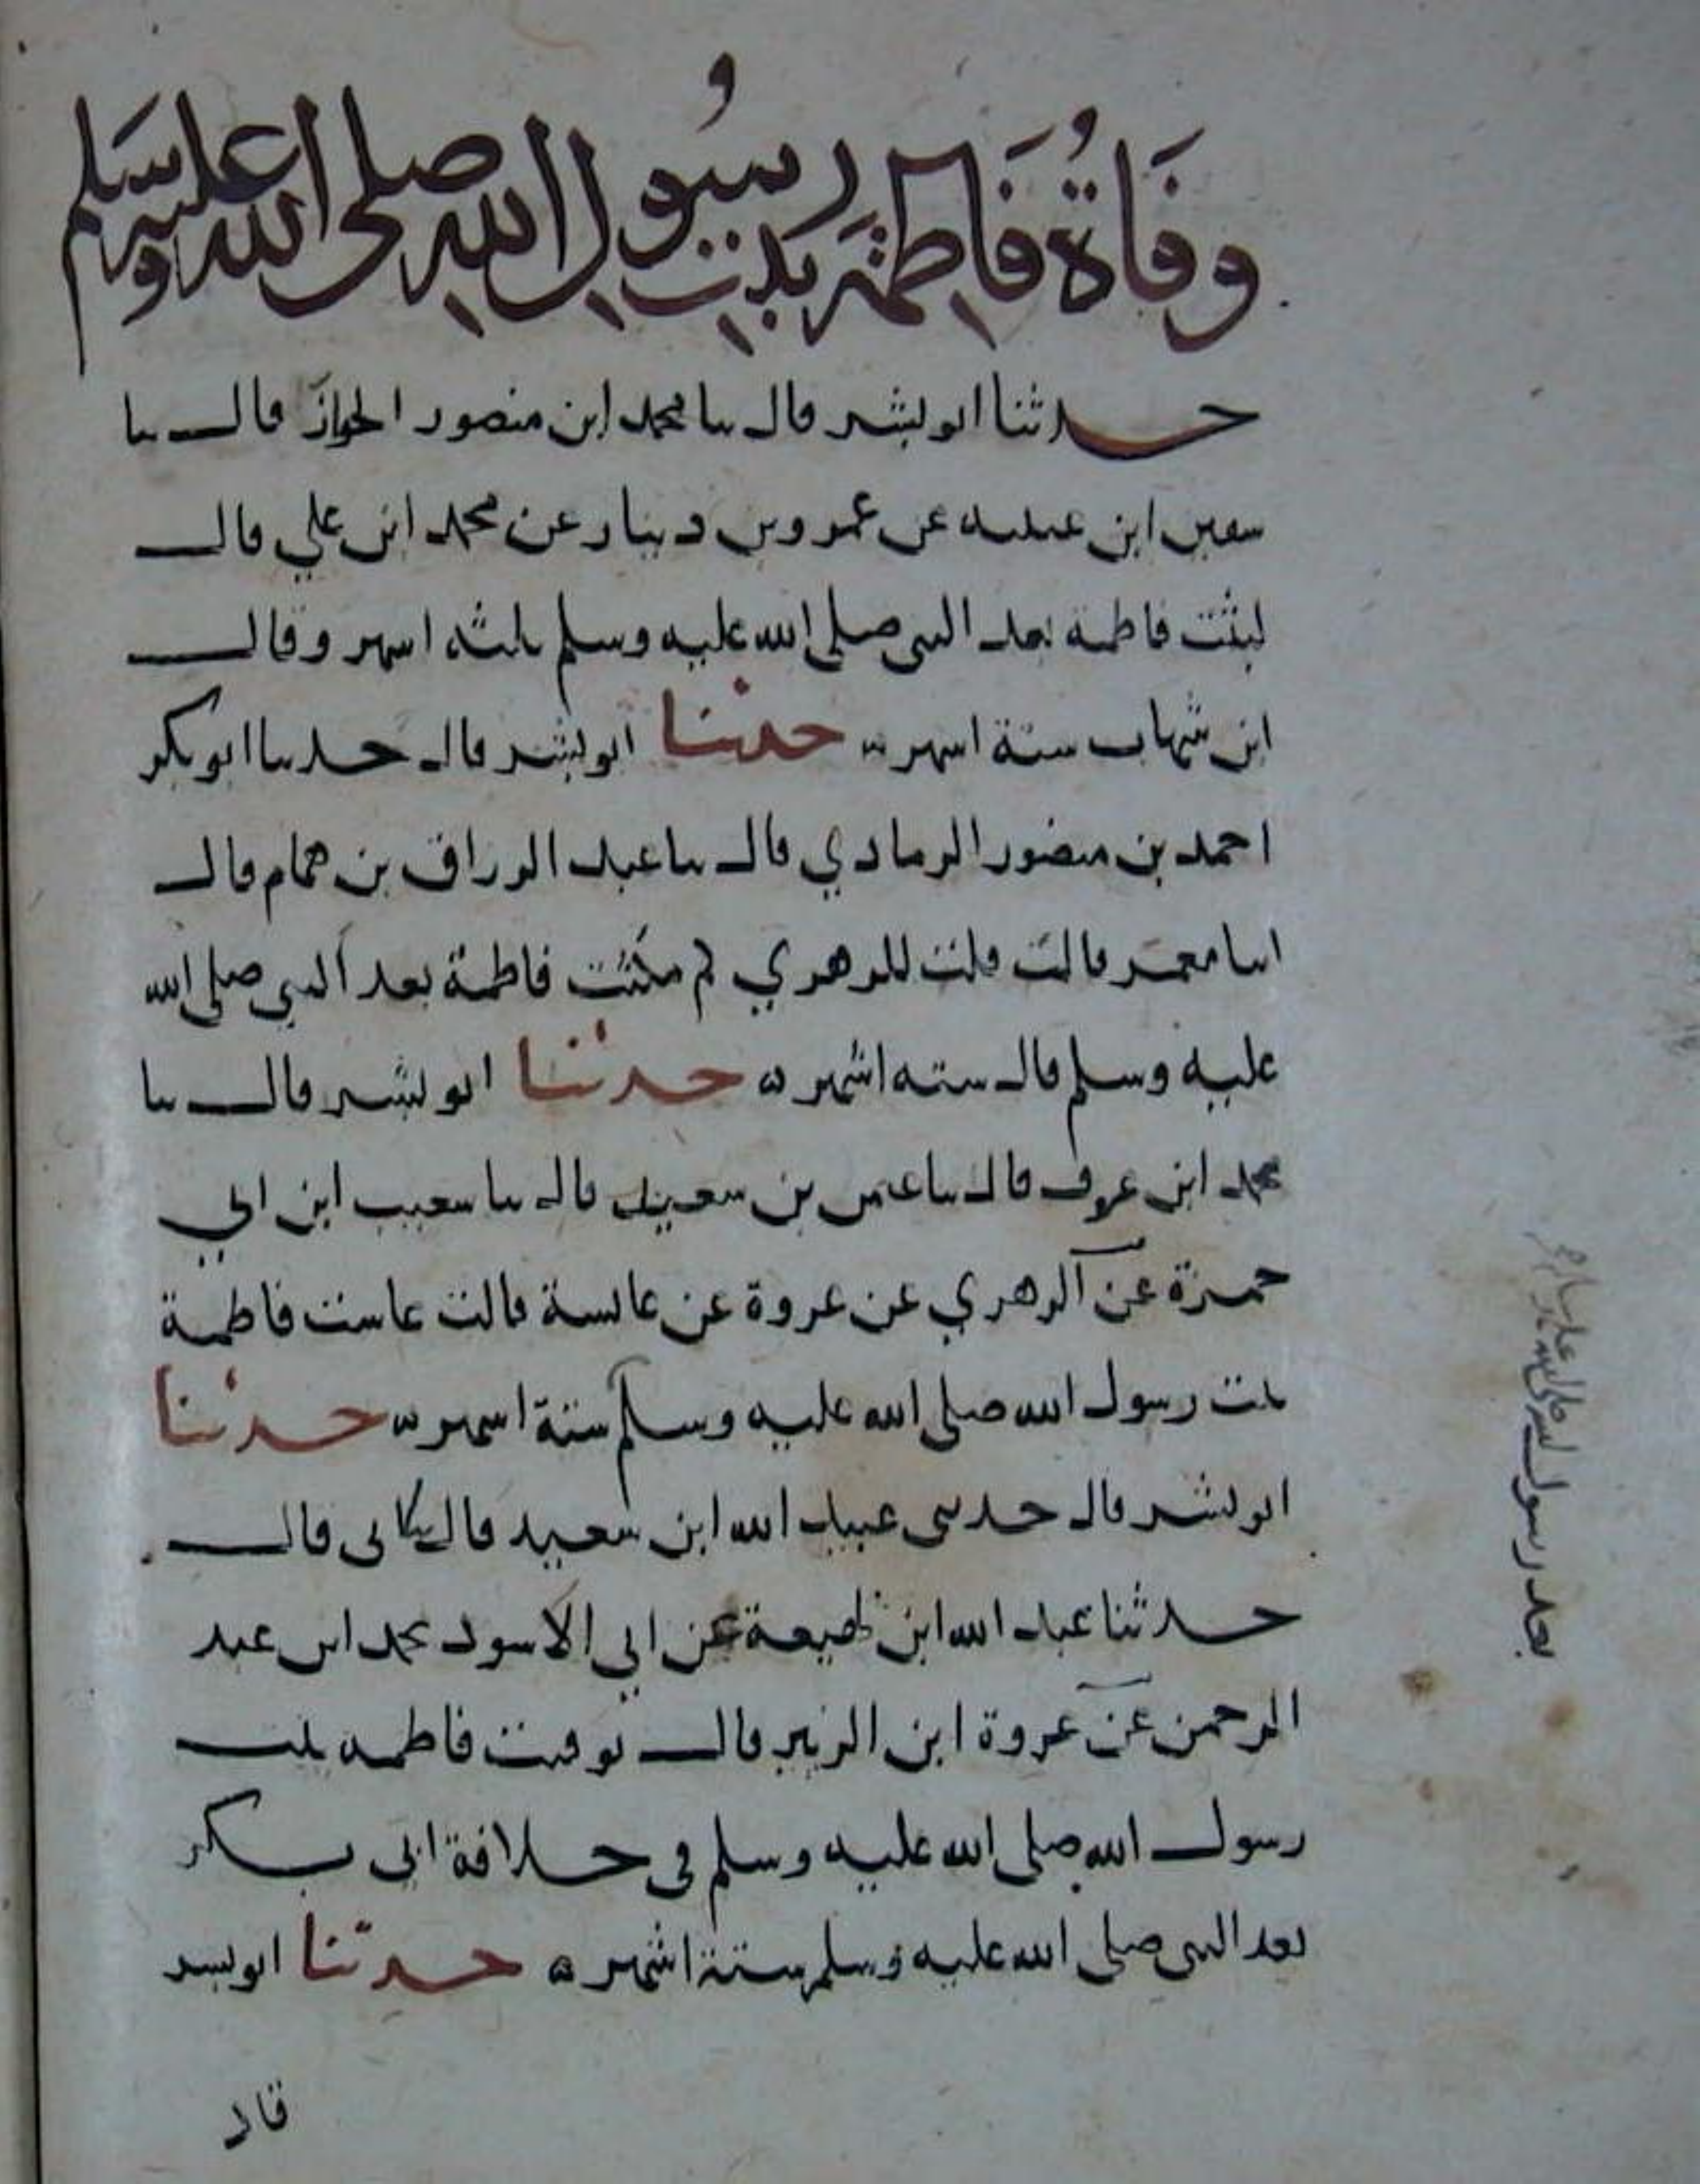 وفاة فاطمة بنت رسول الله صلى الله عليه وسلم
حدثنا ابو بشر قال ثنا محمد ابن منصور الجواز قال ثنا
سفين ابن عيينه عن عمرو بن دينار عن محمد ابن علي قال
لبثت فاطمة بعد النبي صلى الله عليه وسلم ثلثه اشهر وقال
ابن شهاب ستة اشهر حدثنا ابو بشر قال حدثنا ابو بكر
احمد بن منصور الرمادي قال ثنا عبد الرزاق بن همام قال
انبا معمر قالت قلت للزهري كم مكثت فاطمة بعد النبي صلى الله
عليه وسلم قال سته اشهر حدثنا ابو بشر قال ثنا
محمد ابن عوف قال ثنا عثمن بن سعيد قال ثنا شعيب ابن ابي
حمزة عن الزهري عن عروة عن عائشة قالت عاشت فاطمة
بنت رسول الله صلى الله عليه وسلم ستة اشهر حدثنا
ابو بشر قال حدثني عبيد الله ابن سعيد قال ثنا ابي قال
حدثنا عبد الله ابن لهيعة عن ابي الاسود محمد ابن عبد
الرحمن عن عروة ابن الزبير قال توفيت فاطمه بنت
رسول الله صلى الله عليه وسلم في خلافة ابي بكر
بعد النبي صلى الله عليه وسلم ستة اشهر حدثنا ابو بشر
قال
بعد رسول الله صلى الله عليه